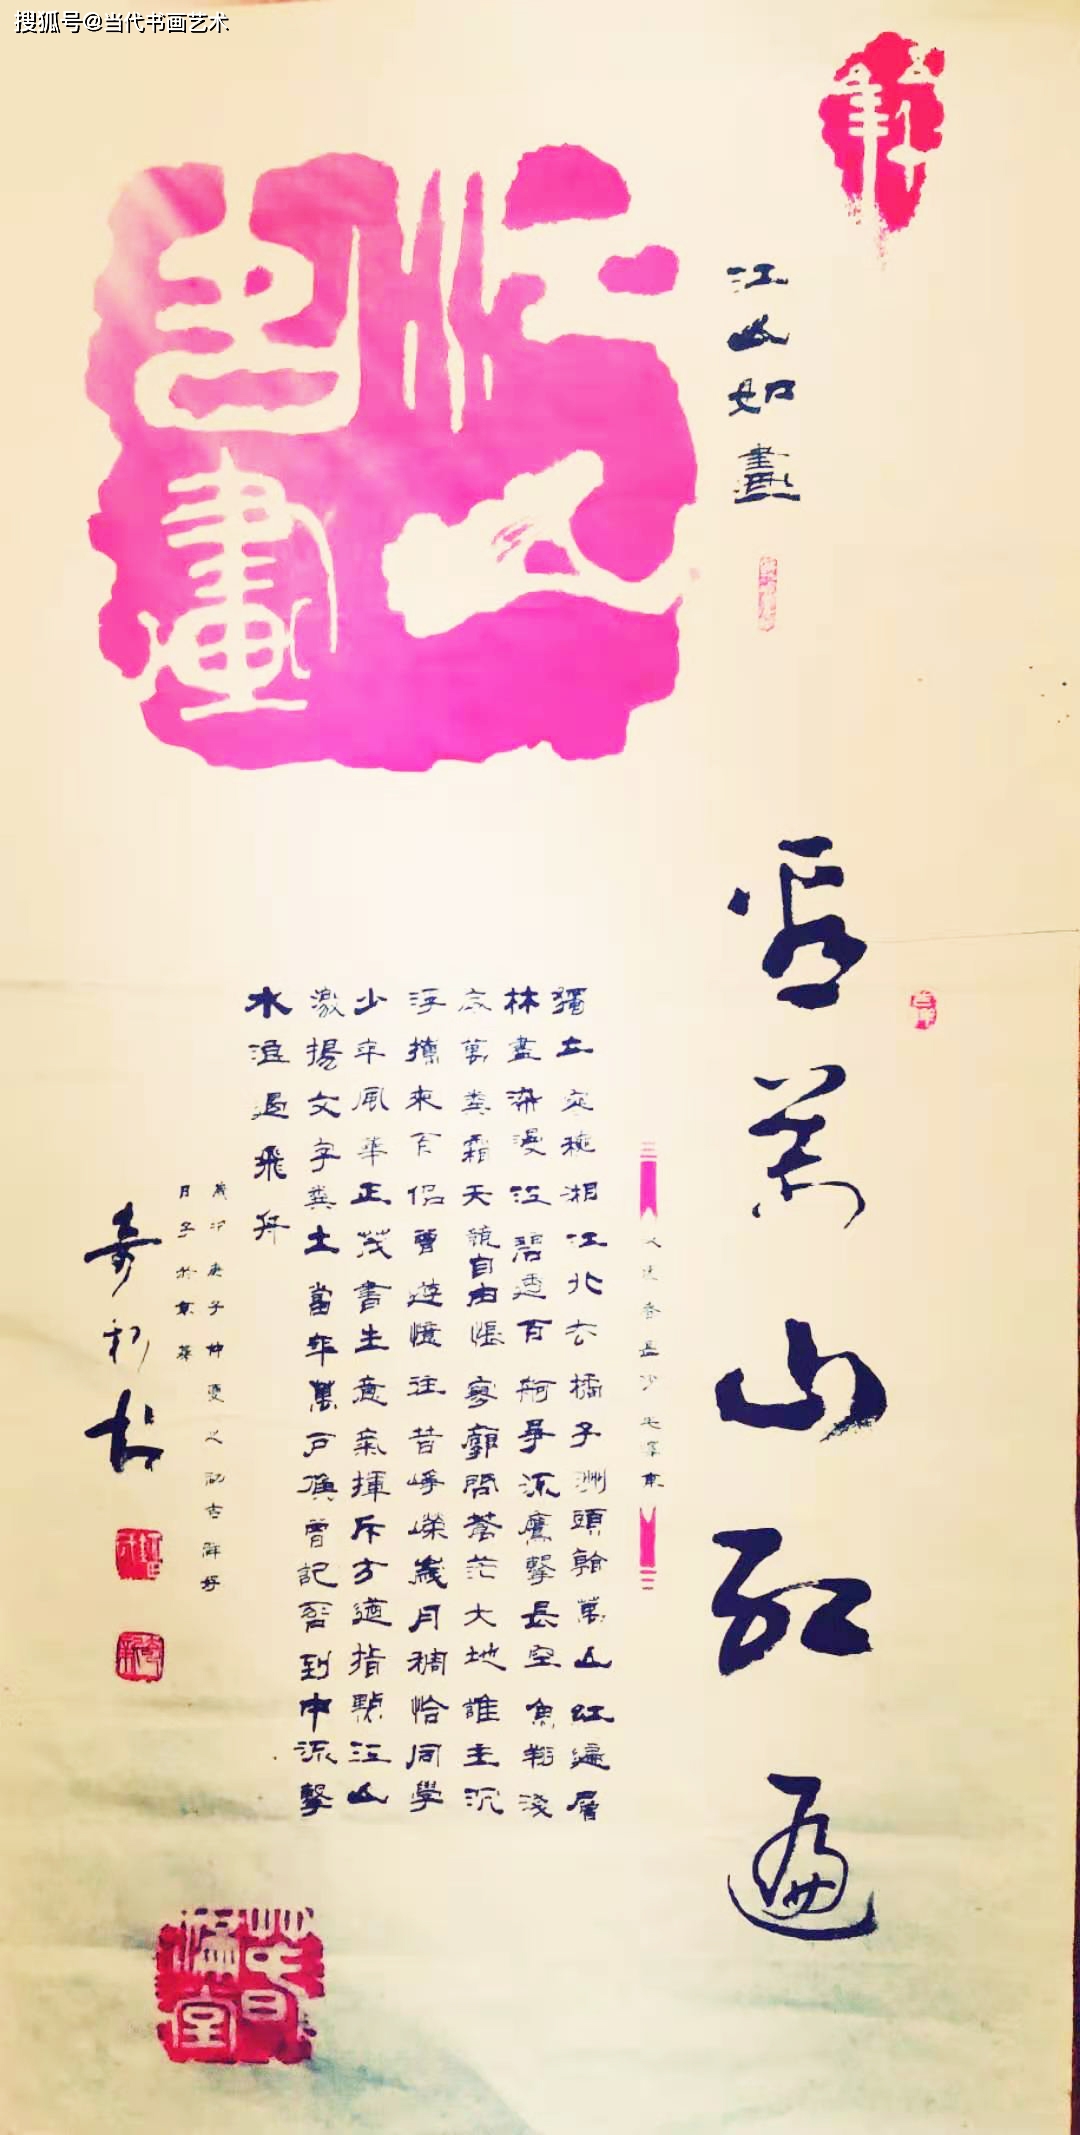 搜狐号@当代书画艺术
江山如畫
江山如畫
看萬山紅遍
沁園春長沙毛澤東
獨立寒穐湘江北去橘子洲頭看萬山紅遍層
林盡染漫江碧透百舸爭流鷹擊長空魚翔淺
底萬類霜天競自由悵寥廓問蒼茫大地誰主沉
浮攜來百侶曾遊憶往昔崢嶸歲月稠恰同學
少年風華正茂書生意氣揮斥方遒指點江山
激揚文字糞土當年萬戶侯曾記否到中流擊
水浪遏飛舟
歲次庚子仲夏之初吉祥好
月子於京華